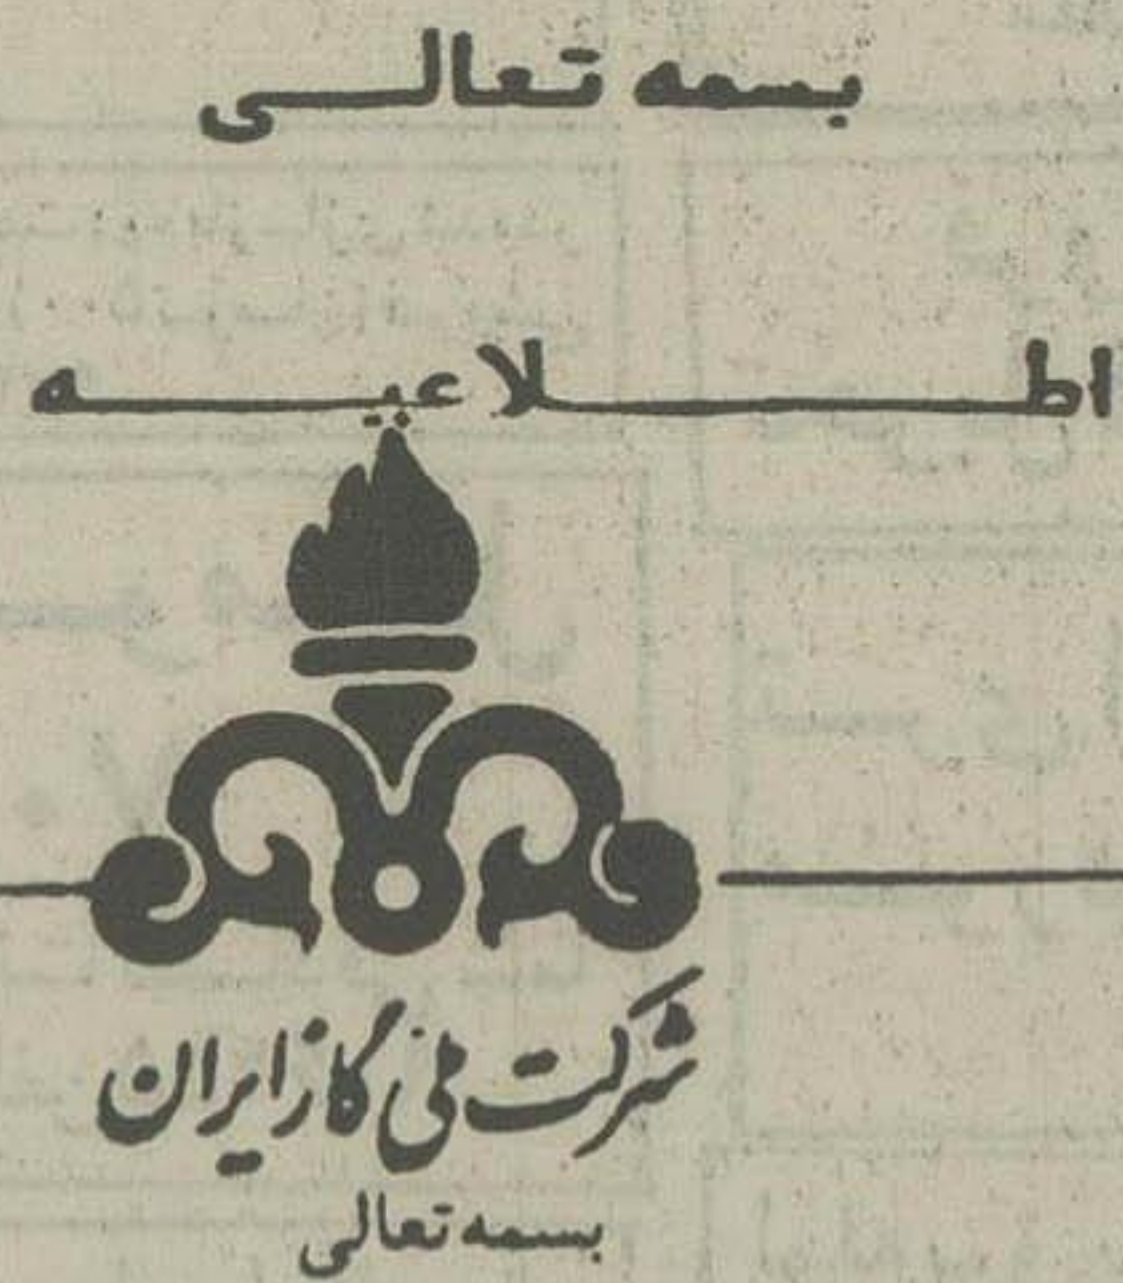 بسمه تعالی
اطلاعیه
شرکت ملی گاز ایران
بسمه تعالی